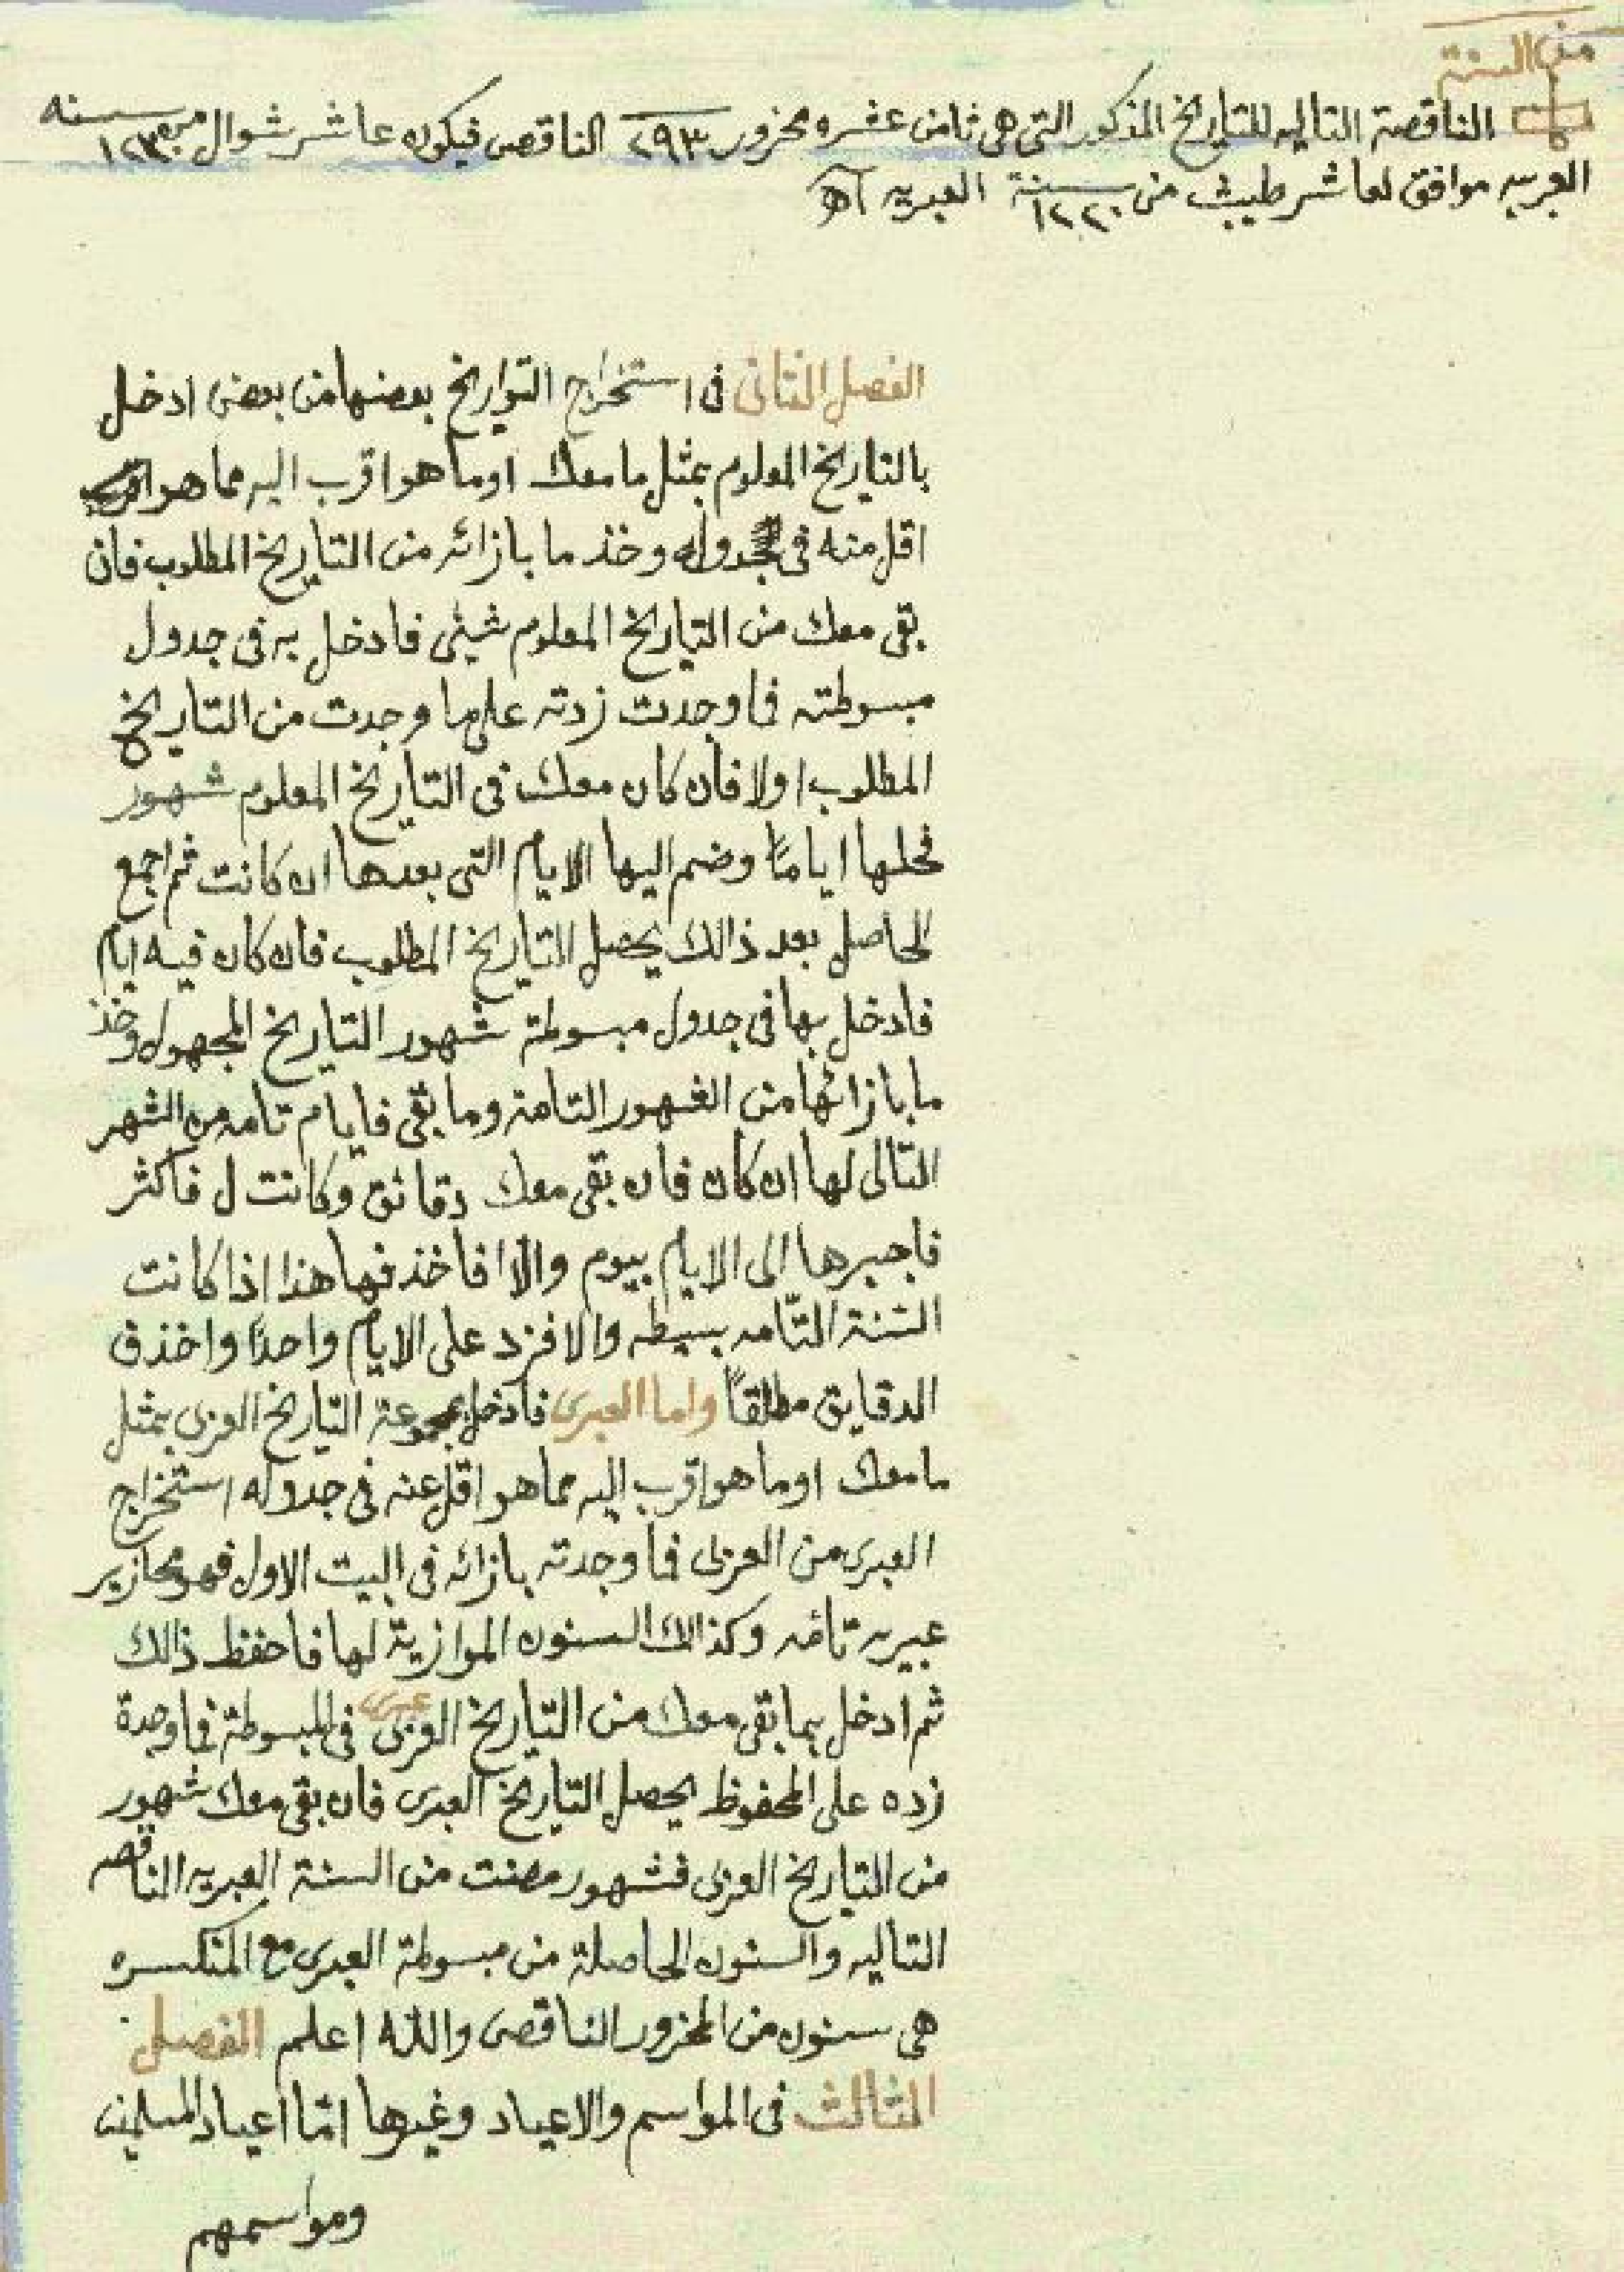 من السنة
الناقصة التاليه للتاريخ المذكور التى هى ثامن عشر ومحزور ٢٩٣ الناقص فيكون عاشر شوال من سنه ١٢٣٠
العربيه موافق لعاشر طيبث من سنة ١٢٢٠ العبريه اه
الفصل الثانى فى استخراج التواريخ بعضها من بعض ادخل
بالتاريخ المعلوم بمثل ما معك او ما هو اقرب اليه مما هو
اقل منه فى جدوله وخذ ما بازائه من التاريخ المطلوب فان
بقى معك من التاريخ المعلوم شيئى فادخل به فى جدول
مبسوطته فما وجدت زدته على ما وجدت من التاريخ
المطلوب اولا فان كان معك فى التاريخ المعلوم شهور
فحلها اياماً وضم اليها الايام التى بعدها ان كانت ثم اجمع
الحاصل بعد ذالك يحصل التاريخ المطلوب فان كان فيه ايام
فادخل بها فى جدول مبسوطة شهور التاريخ المجهول وخذ
ما بازائها من الشهور التامة وما بقى فايام تامه من الشهر
التالى لها ان كان فان بقى معك دقائق وكانت ل فاكثر
فاجبرها الى الايام بيوم والا فاحذفها هذا اذا كانت
السنة التامه بسيطه والا فزد على الايام واحدا واحذف
الدقايق مطلقاً واما العبرى فادخل بمجموعة التاريخ العربى بمثل
ما معك او ما هو اقرب اليه مما هو اقل عنه فى جدوله استخراج
العبرى من العربى فما وجدته بازائه فى البيت الاول فهو محازير
عبريه تامه وكذالك السنون الموازية لها فاحفظ ذالك
ثم ادخل بما بقى معك من التاريخ العربى عبرى فى المبسوطة فما وجدة
زده على المحفوظ يحصل التاريخ العبرى فان بقى معك شهور
من التاريخ العربى فشهور مضت من السنة العبريه الناقصه
التاليه والسنون الحاصلة من مبسوطة العبرى مع المنكسره
هى سنون من المحزور الناقص والله اعلم الفصل
الثالث فى المواسم والاعياد وغيرها امّا اعياد المسلمين
ومواسمهم